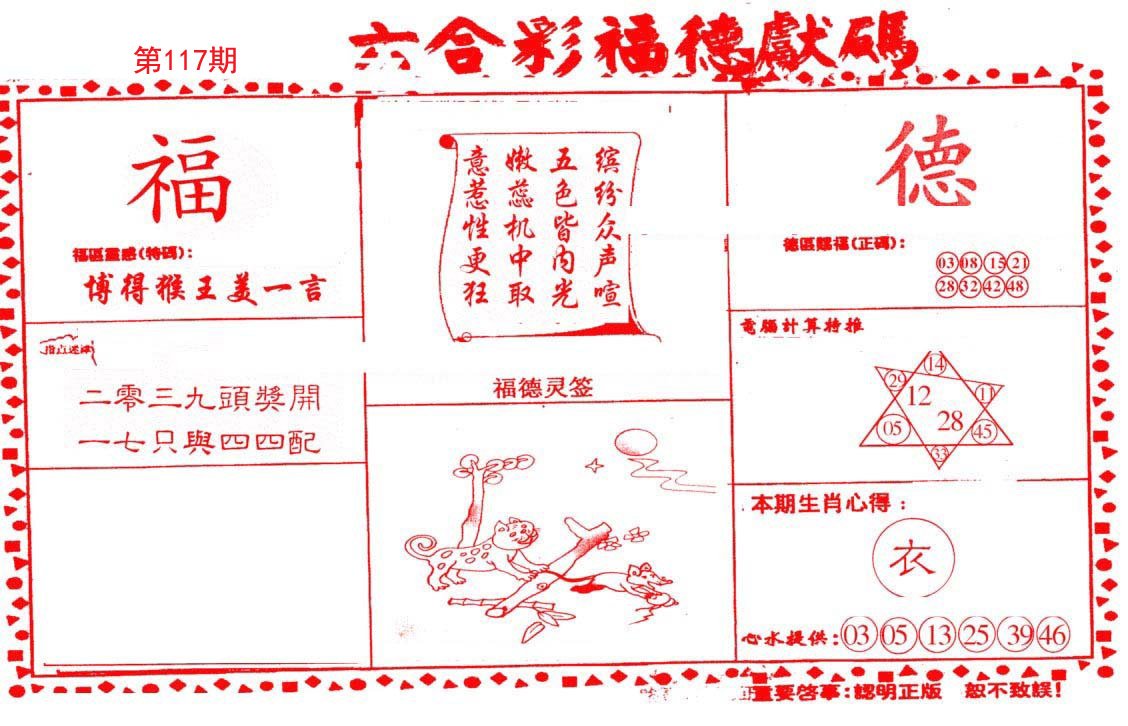 第117期
六合彩福德獻碼
福
福區靈感(特碼):
博得猴王美一言
二零三九頭獎開
一七只與四四配
缤纷众声喧
五色皆内光
嫩蕊机中取
意惹性更狂
福德灵签
德
德區賜福(正碼):
03 08 15 21
28 32 42 48
電腦計算特推
14
29
12
11
05
28
45
33
本期生肖心得:
衣
心水提供:03 05 13 25 39 46
重要啓事:認明正版 恕不致誤!